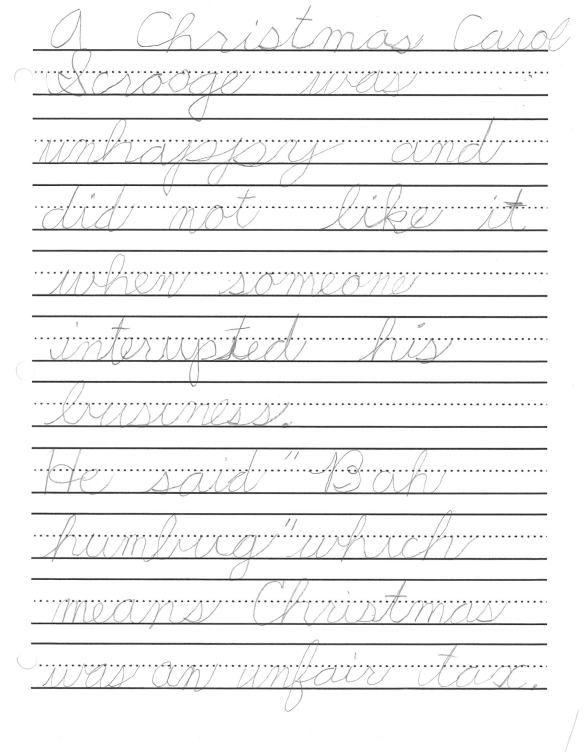 A Christmas Carol
Scrooge was
unhappy and
did not like it
when someone
interupted his
business.
He said "Bah
humbug" which
means Christmas
was an unfair tax.